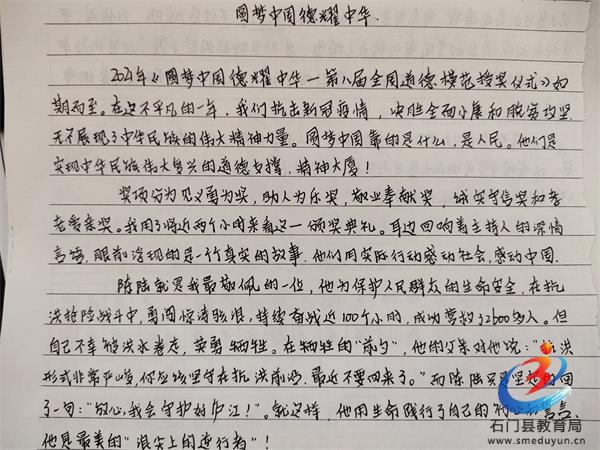 圆梦中国德耀中华.
2021年《圆梦中国德耀中华一第八届全国道德模范授奖仪式》如
期而至。在这不平凡的一年，我们抗击新冠疫情，决胜全面小康和脱贫攻坚
无不展现了中华民族的伟大精神力量。圆梦中国靠的是什么，是人民。他们是
实现中华民族伟大复兴的道德支撑，精神大厦！
奖项分为见义勇为奖，助人为乐奖，敬业奉献奖，诚实守信奖和孝
老爱亲奖。我用了将近两个小时来看这一颁奖典礼。耳边回响着主持人的深情
言语，眼前浮现的是一个个真实的故事，他们用实际行动感动社会，感动中国.
陈陆就是我最敬佩的一位，他为保护人民群众的生命安全，在抗
洪抢险战斗中，勇闯惊涛骇浪，持续奋战近100个小时，成功营救32600多人。但
自己不幸被洪水卷走，英勇牺牲。在牺牲的"前夕"，他的父亲对他说："抗洪
形式非常严峻，你应该坚守在抗洪前沿，最近不要回来了。"而陈陆只坚定的回
了一句："放心，我会守护好庐江！"。就这样，他用生命践行了自己的初心和誓言，
他是最美的"浪尖上的逆行者"！
石门县教育局
www.smeduyun.cn